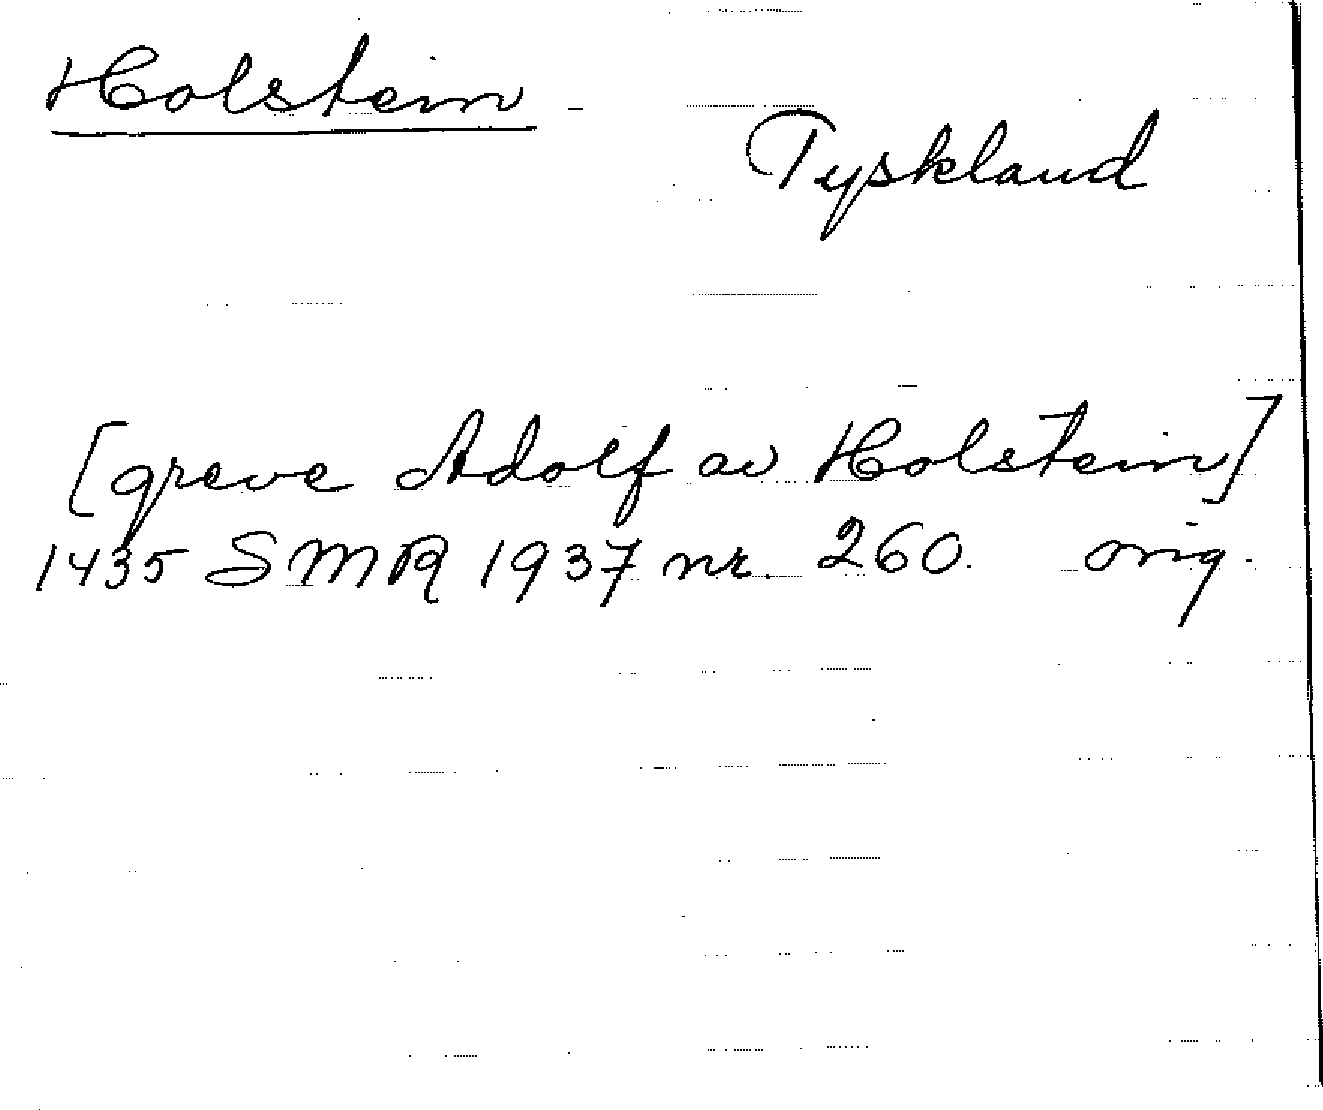 Holstein
Tyskland
[greve Adolf av Holstein]
1435 SMR 1937 nr. 260. orig.